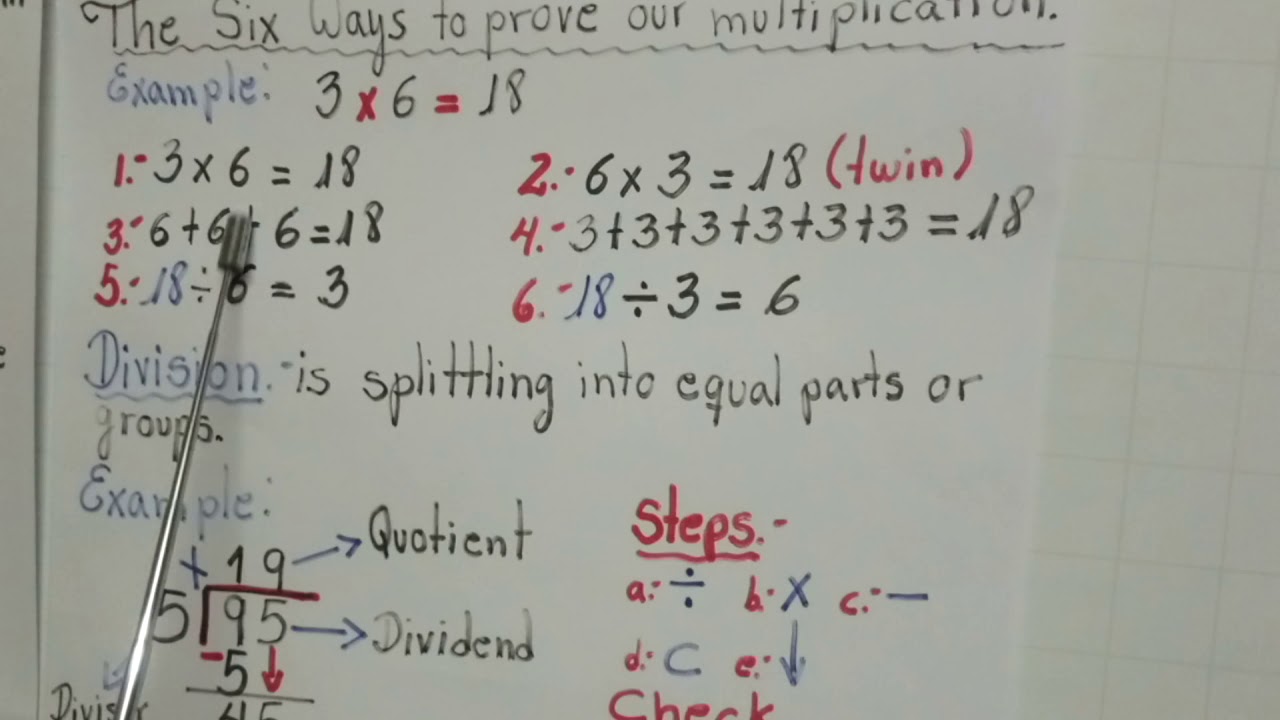 The Six Ways to prove our multiplication.
Example: 3 x 6 = 18
1.- 3 x 6 = 18
2.- 6 x 3 = 18 (twin)
3.- 6+6+6=18
4.- 3+3+3+3+3+3 = 18
5.- 18 ÷ 6 = 3
6.- 18 ÷ 3 = 6
Division.- is splittling into equal parts or
groups.
Example:
+ 19 → Quotient
5 95 → Dividend
- 5 ↓
45
Steps.-
a.- ÷ b.- X c.- —
d.- C e.- ↓
Check